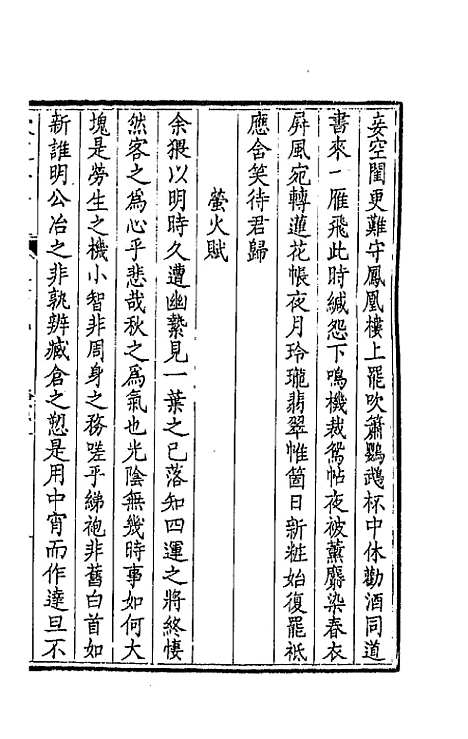 妾空閨更難守鳳凰樓上罷吹簫鸚鵡杯中休勸酒同道
書來一雁飛此時緘怨下鳴機裁鴛帖夜被薰麝染春衣
屏風宛轉蓮花帳夜月玲瓏翡翠帷箇日新粧始復罷祇
應含笑待君歸
螢火賦
余猥以明時久遭幽縶見一葉之已落知四運之將終悽
然客之為心乎悲哉秋之為氣也光陰無幾時事如何大
塊是勞生之機小智非周身之務嗟乎綈袍非舊白首如
新誰明公冶之非孰辨臧倉之愬是用中宵而作達旦不